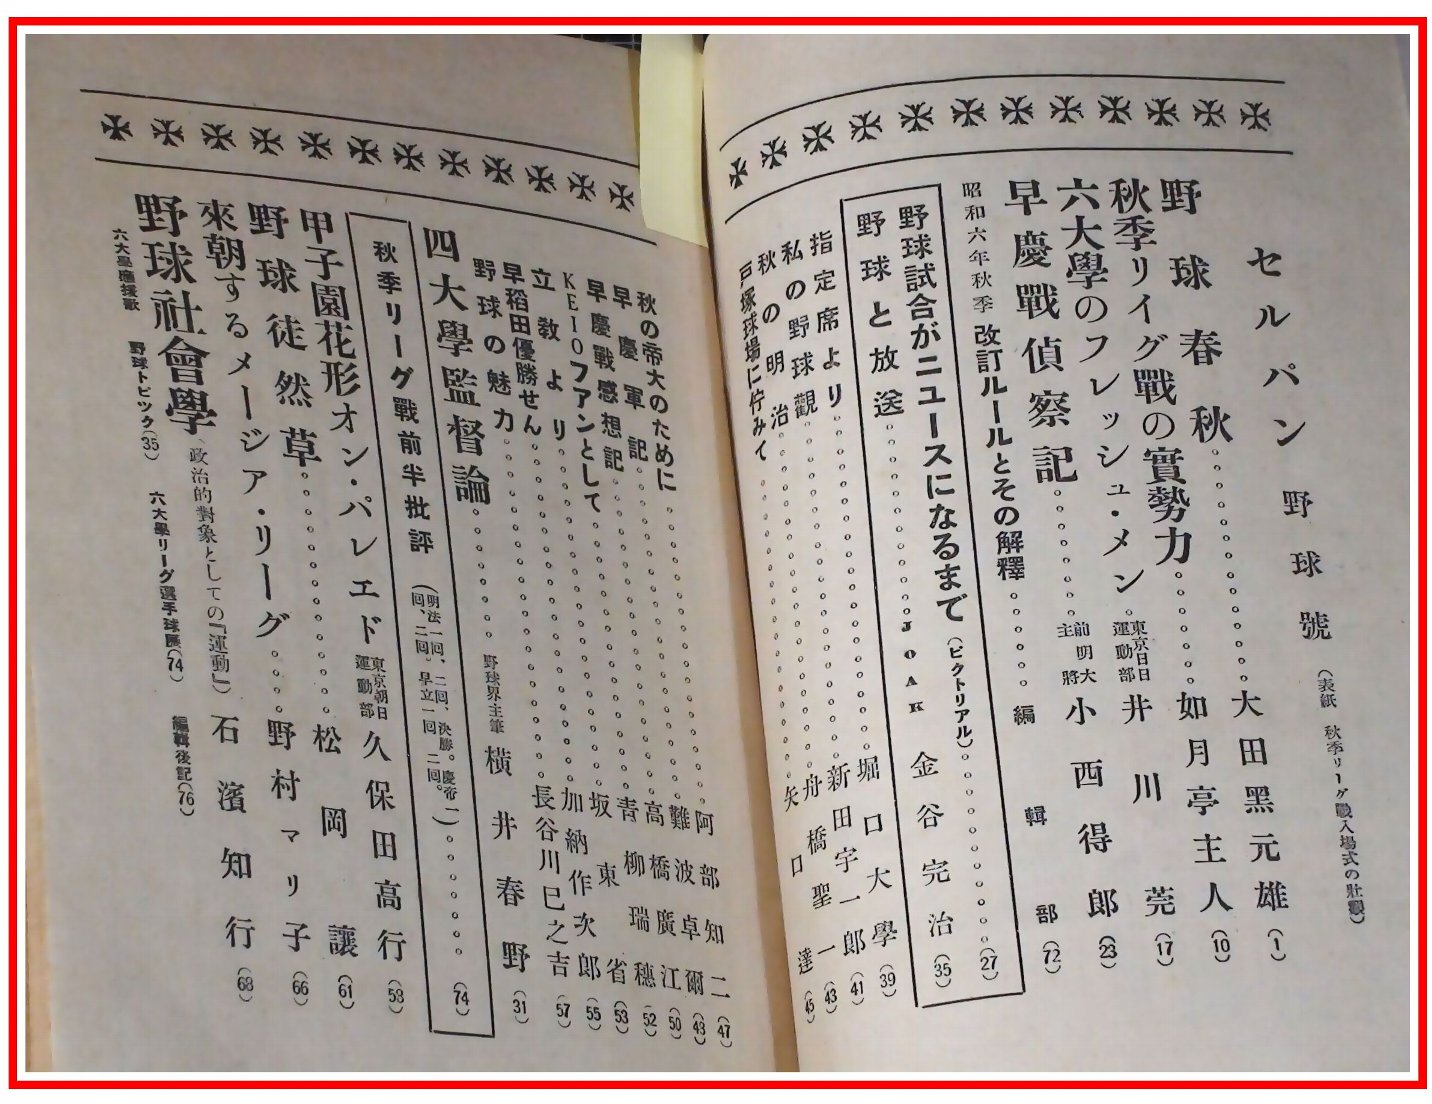 セルパン 野球號 (表紙 秋季リーグ戰入場式の壯觀)
野球春秋 大田黑元雄 (1)
秋季リイグ戰の實勢力 如月亭主人 (10)
六大學のフレッシュ・メン 東京日日運動部 井川莞 (17)
早慶戰偵察記 前明大主將 小西得郎 (23)
昭和六年秋季 改訂ルールとその解釋 編輯部 (72)
野球試合がニュースになるまで (ピクトリアル) (27)
野球と放送 JOAK 金谷完治 (35)
指定席より 堀口大學 (39)
私の野球觀 新田宇一郎 (41)
秋の明治 舟橋聖一 (43)
戸塚球場に佇みて 矢口達 (45)
秋の帝大のために 阿部知二 (47)
早慶軍記 難波卓爾 (43)
早慶戰感想記 高橋廣江 (50)
KEIOファンとして 青柳瑞穗 (52)
立教より 坂東省 (53)
早稻田優勝せん 加納作次郎 (55)
野球の魅力 長谷川巳之吉 (57)
四大學監督論 野球界主筆 横井春野 (31)
秋季リーグ戰前半批評 (明法一回、二回、決勝。慶帝一回、二回。早立一回 二回。) (74)
甲子園花形オン・パレエド 東京朝日運動部 久保田高行 (58)
野球徒然草 松岡讓 (61)
來朝するメージア・リーグ 野村マリ子 (66)
野球社會學 (政治的對象としての『運動』) 石濱知行 (68)
六大學應援歌 野球トピック(35) 六大學リーグ選手球展(74) 編輯後記(76)